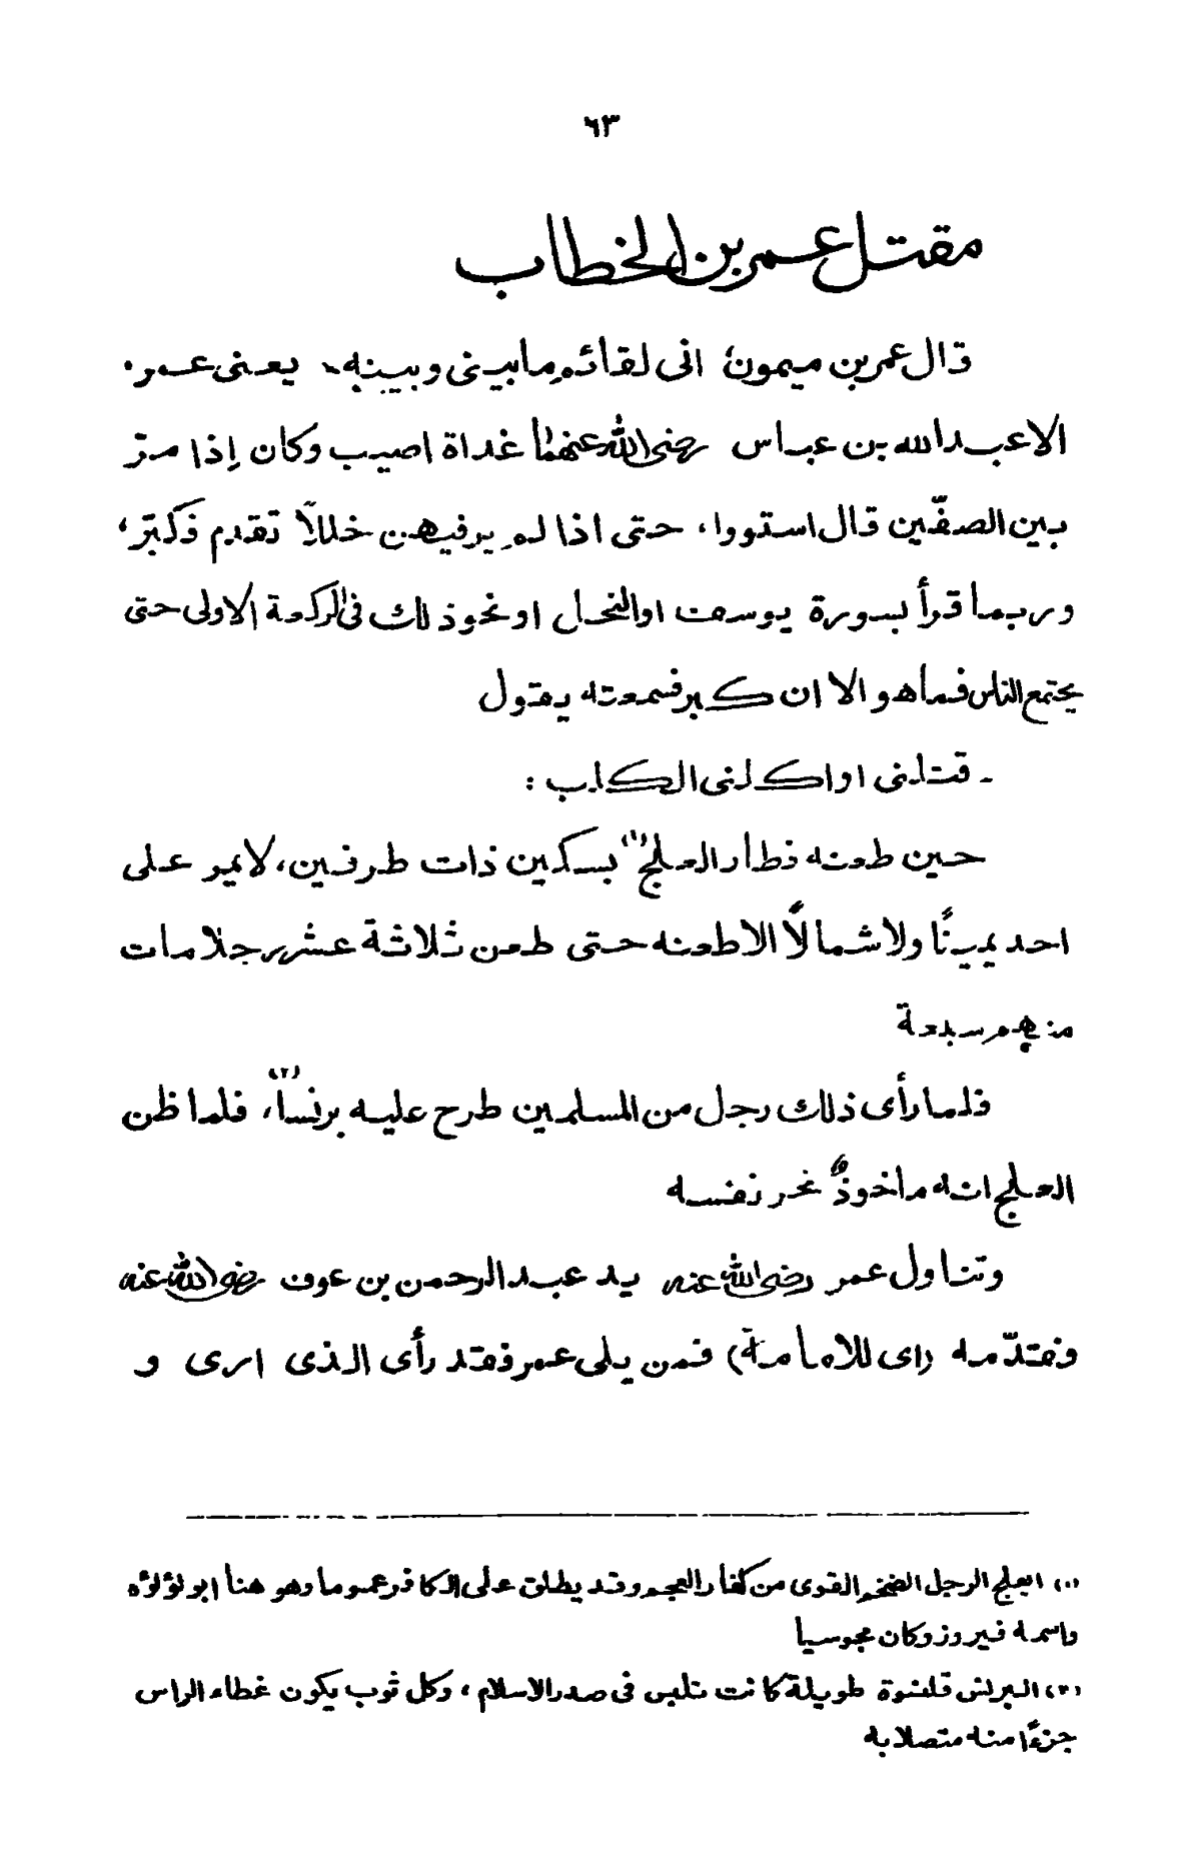 ٦٣
مقتل عمر بن الخطاب
قال عمر بن ميمون؛ انى لقائم ما بينى وبينه - يعنى عمر -
الا عبد الله بن عباس رضى الله عنهما غداة اصيب وكان إذا مرّ
بين الصفّين قال استووا، حتى اذا لم ير فيهن خللاً تقدم فكبّر،
وربما قرأ بسورة يوسف او النحل او نحو ذلك فى الركعة الاولى حتى
يجتمع الناس فما هو الا ان كبر فسمعته يقول
- قتلنى او اكلنى الكلب :
حين طعنه فطار العلج (١) بسكين ذات طرفين، لا يمر على
احد يمينًا ولا شمالًا الا طعنه حتى طعن ثلاثة عشر رجلا مات
منهم سبعة
فلما رأى ذلك رجل من المسلمين طرح عليه برنسا (٢)، فلما ظن
العلج انه مأخوذٌ نحر نفسه
وتناول عمر رضى الله عنه يد عبد الرحمن بن عوف رضى الله عنه
فقدّمه (اى للامامة) فمن يلى عمر فقد رأى الذى ارى و
(١) العلج الرجل الضخم القوى من كفار العجم وقد يطلق على الكافر عموما وهو هنا ابو لؤلؤه
واسمه فيروز وكان مجوسيا
(٢) البرنس قلنسوة طويلة كانت تلبس فى صدر الاسلام، وكل ثوب يكون غطاء الراس
جزءًا منه متصلا به